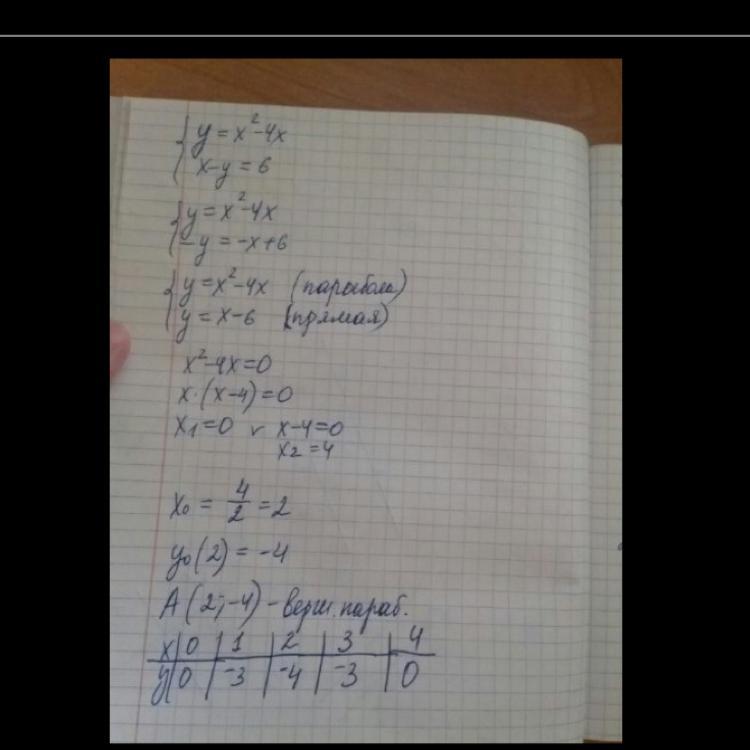 { y = x² - 4x
x - y = 6
{ y = x² - 4x
-y = -x + 6
{ y = x² - 4x (парабола)
y = x - 6 (прямая)
x² - 4x = 0
x · (x - 4) = 0
x₁ = 0 v x - 4 = 0
x₂ = 4
x₀ = 4/2 = 2
y₀(2) = -4
A (2; -4) - верш. параб.
x | 0 | 1 | 2 | 3 | 4
y | 0 | -3 | -4 | -3 | 0